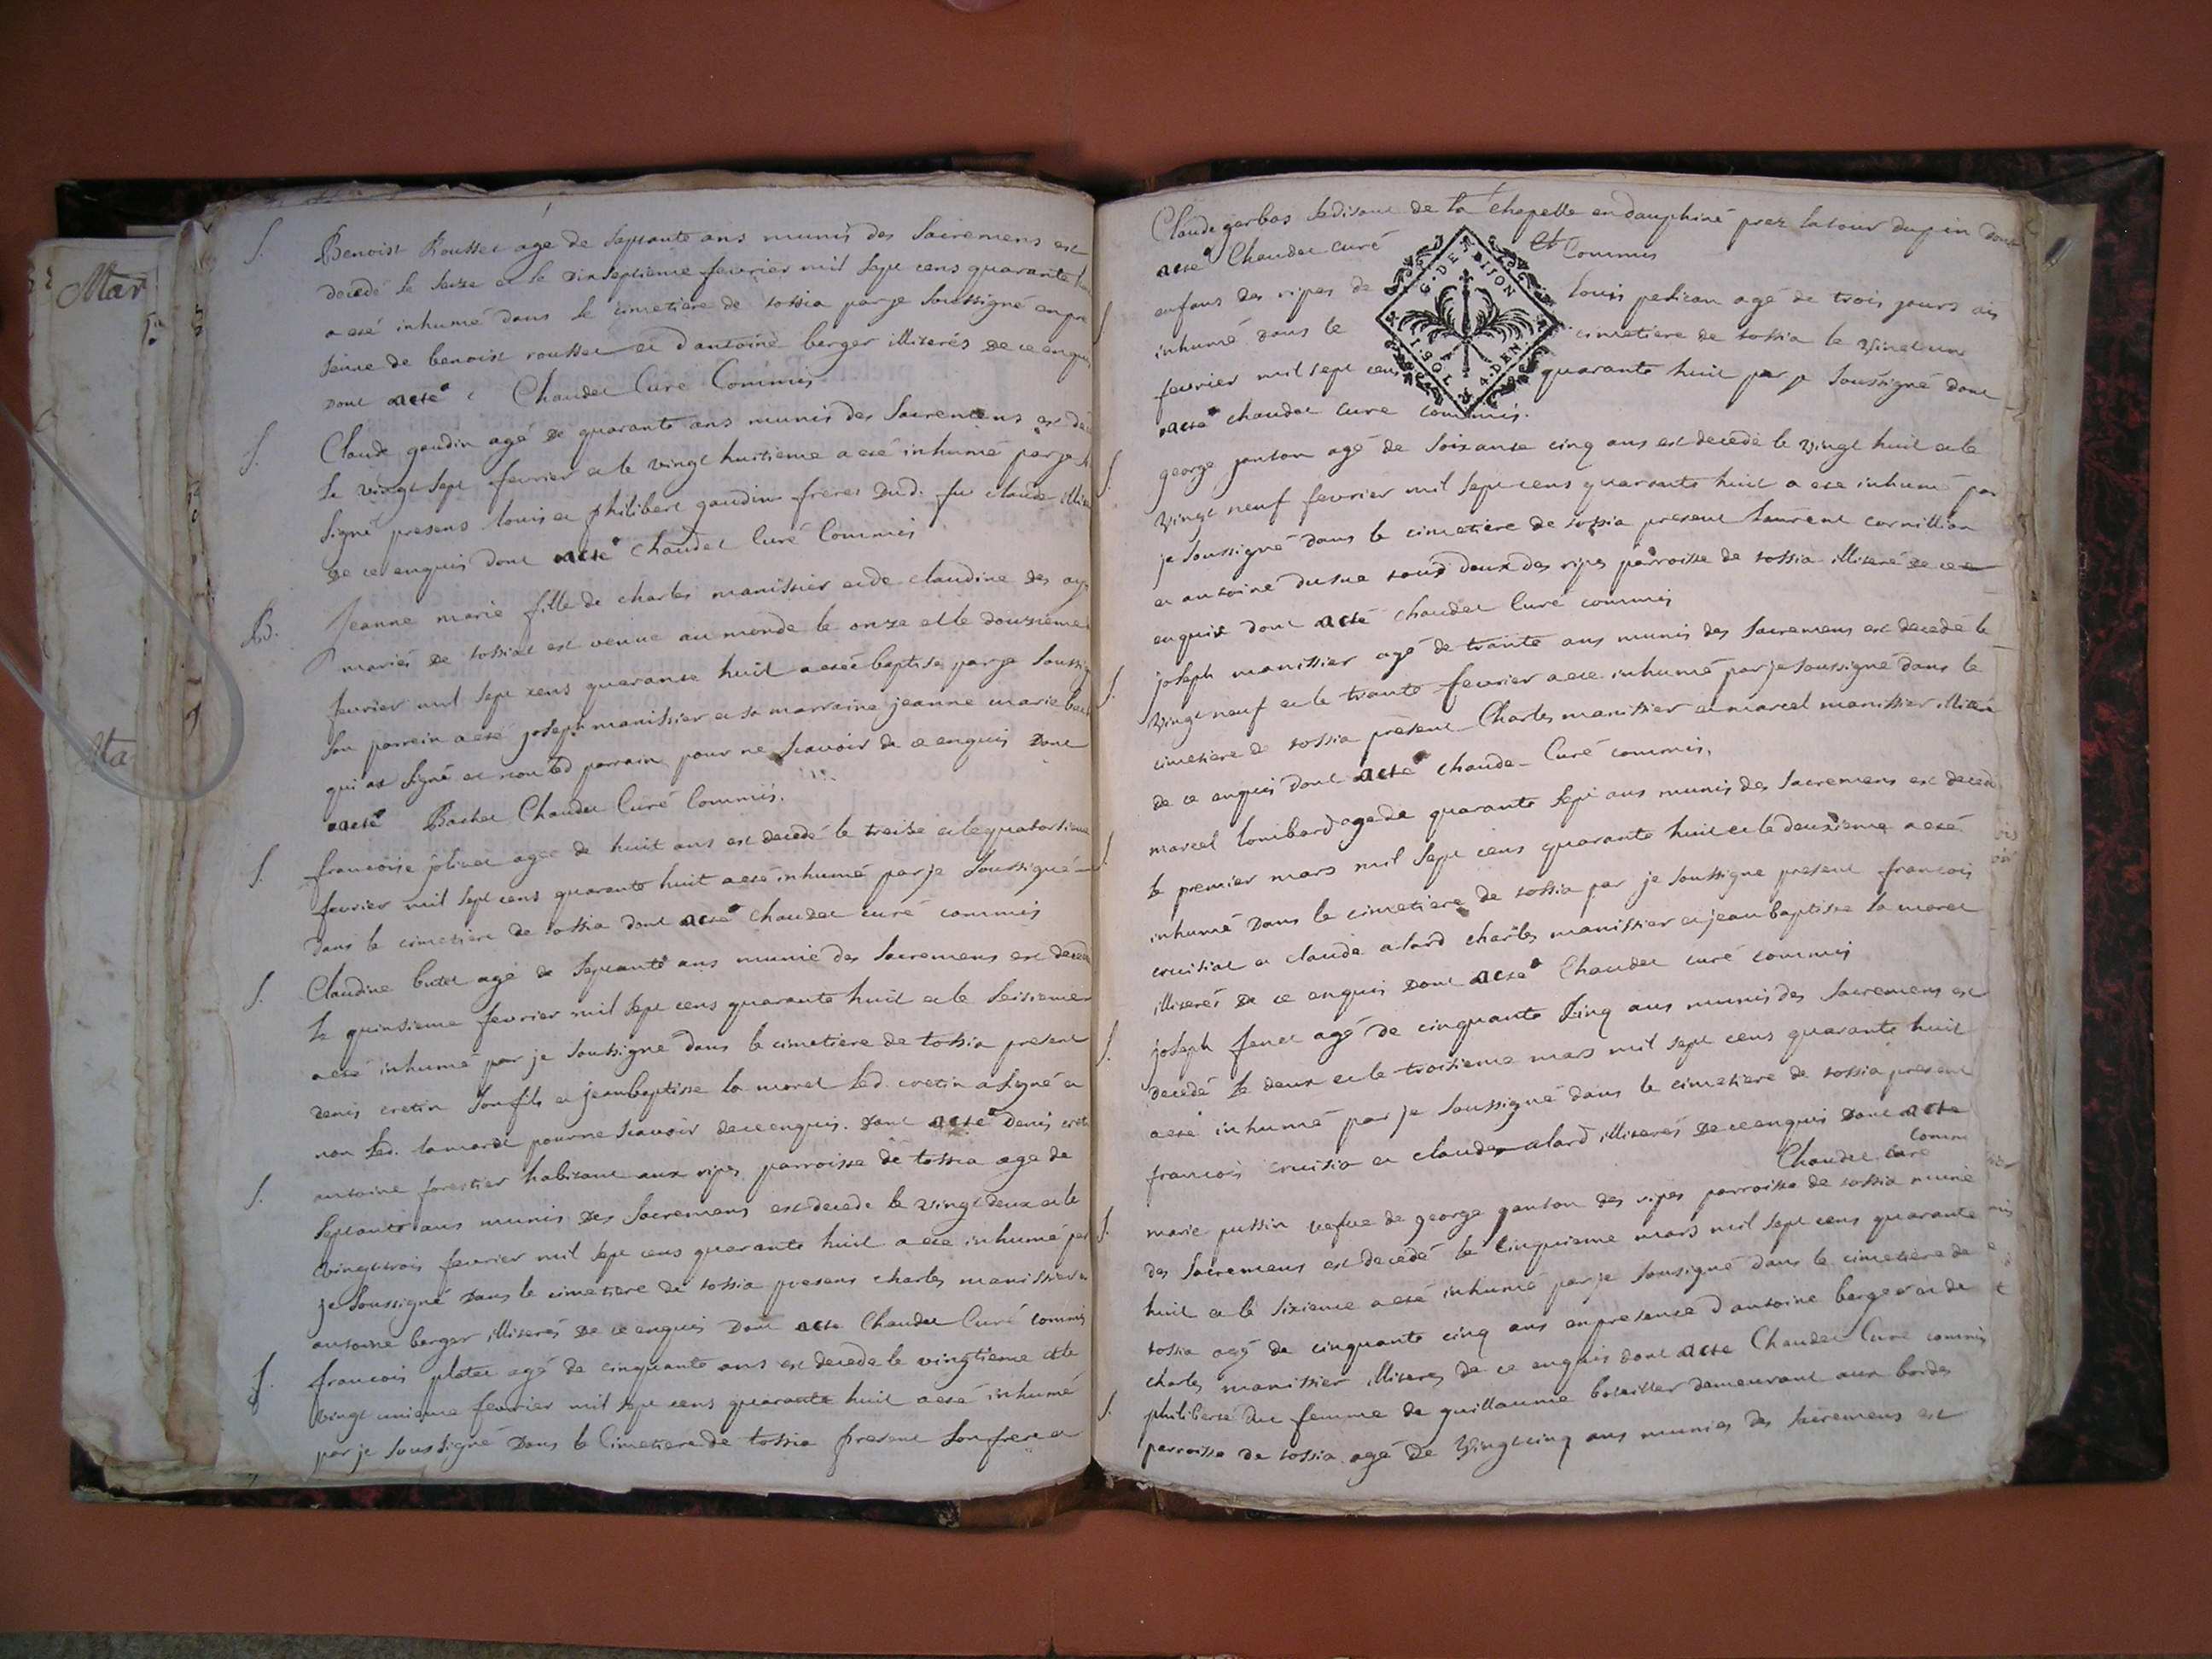 Mar
Ma
S. Benoist Rousset age de septante ans munis des sacremens est
decedé le seize et le dixseptieme fevrier mil sept cens quarante
a eté inhumé dans le cimetiere de tossia par je soussigné en pre
sence de benoist rousset et d'antoine berger illiterés de ce enquis
dont acte Chaudet Curé Commis
S. Claude gaudin agé de quarante ans munis des sacremens est de
le vingt sept fevrier et le vingt huitieme a eté inhumé par je
signé presens louis et philibert gaudin freres dud. fu claude
de ce enquis dont acte Chaudet Curé Commis
B. Jeanne marie fille de charles manissier et de claudine des
mariés de tossiat est venue au monde le onze et le douzieme
fevrier mil sept cens quarante huit a eté baptisé par je soussig
son parrein a eté joseph manissier et sa marraine jeanne marie
qui at signé et non led parrain pour ne scavoir de ce enquis dont
acte Chaudet Curé Commis.
S. francoise agee de huit ans est decedé le treise et le quatorsieme
fevrier mil sept cens quarante huit a eté inhumé par je soussigné
dans le cimetiere de tossia dont acte Chaudet curé commis
S. Claudine butet agé de septante ans munie des sacremens est decede
le quinsieme fevrier mil sept cens quarante huit et le seisieme
a eté inhumé par je soussigné dans le cimetiere de tossia present
denis cretin son fils et jean baptiste la morel led. cretin a signé et
non led. lamorel pour ne scavoir de ce enquis. dont acte Denis
S. antoine forestier habitant aux ripes parroisse de tossia age de
septante ans munis des sacremens est decede le vingt deux et le
vingt trois fevrier mil sept cens quarante huit a eté inhumé par
je soussigné dans le cimetiere de tossia presens charles manissier
antoine berger illiterés de ce enquis dont acte Chaudet Curé commis
S. francois platet agé de cinquante ans est decede le vingtieme et le
vingt unieme fevrier mil sept cens quarante huit a eté inhumé
par je soussigné dans le Cimetiere de tossia present son frere et
Claude gerbas se disant de la chapelle en dauphiné prez la tour du pin dont
acte Chaudet curé et Commis
G. DE DIJON
1 SOL 4. DEN.
S. enfans des ripes de louis pelican agé de trois jours
inhumé dans le cimetiere de tossia le vingt un
fevrier mil sept cens quarante huit par je soussigné dont
acte chaudet cure commis.
S. george janton agé de soixante cinq ans est decede le vingt huit et le
vingt neuf fevrier mil sept cens quarante huit a eté inhumé par
je soussigné dans le cimetiere de tossia present laurent cornillion
et antoine tous deux des ripes parroisse de tossia illiteré de ce
enquis dont acte chaudet Curé commis
S. joseph manissier agé de trante ans munis des sacremens est decedé le
vingt neuf et le trante fevrier a eté inhumé par je soussigné dans le
cimetiere de tossia present Charles manissier et marcel manissier
de ce enquis dont acte chaude Curé commis.
S. marcel lombard age de quarante sept ans munis des sacremens est decede
le premier mars mil sept cens quarante huit et le deuxieme a eté
inhumé dans le cimetiere de tossia par je soussigne present francois
cruisiat et claude alard charles manissier et jean baptiste la morel
illiterés de ce enquis dont acte Chaudet curé commis
S. joseph feuet agé de cinquante cinq ans munis des sacremens est
decedé le deux et le troisieme mars mil sept cens quarante huit
a eté inhumé par je soussigné dans le cimetiere de tossia present
francois cruisia et claude alard illiterés de ce enquis dont acte
Chaudet Curé Comm
S. marie pussin vefue de george ganton des ripes parroisse de tossia munie
des sacremens est decedé le Cinquieme mars mil sept cens quarante
huit et le sixieme a eté inhumé par je sousigné dans le cimetiere de
tossia agé de cinquante cinq ans en presence d'antoine berger et de
charles manissier illiteres de ce enquis dont acte Chaudet Curé commis
S. philiberte duc femme de guillaume demeurant aux bordes
parroisse de tossia agé de vingt cinq ans munies des sacremens est